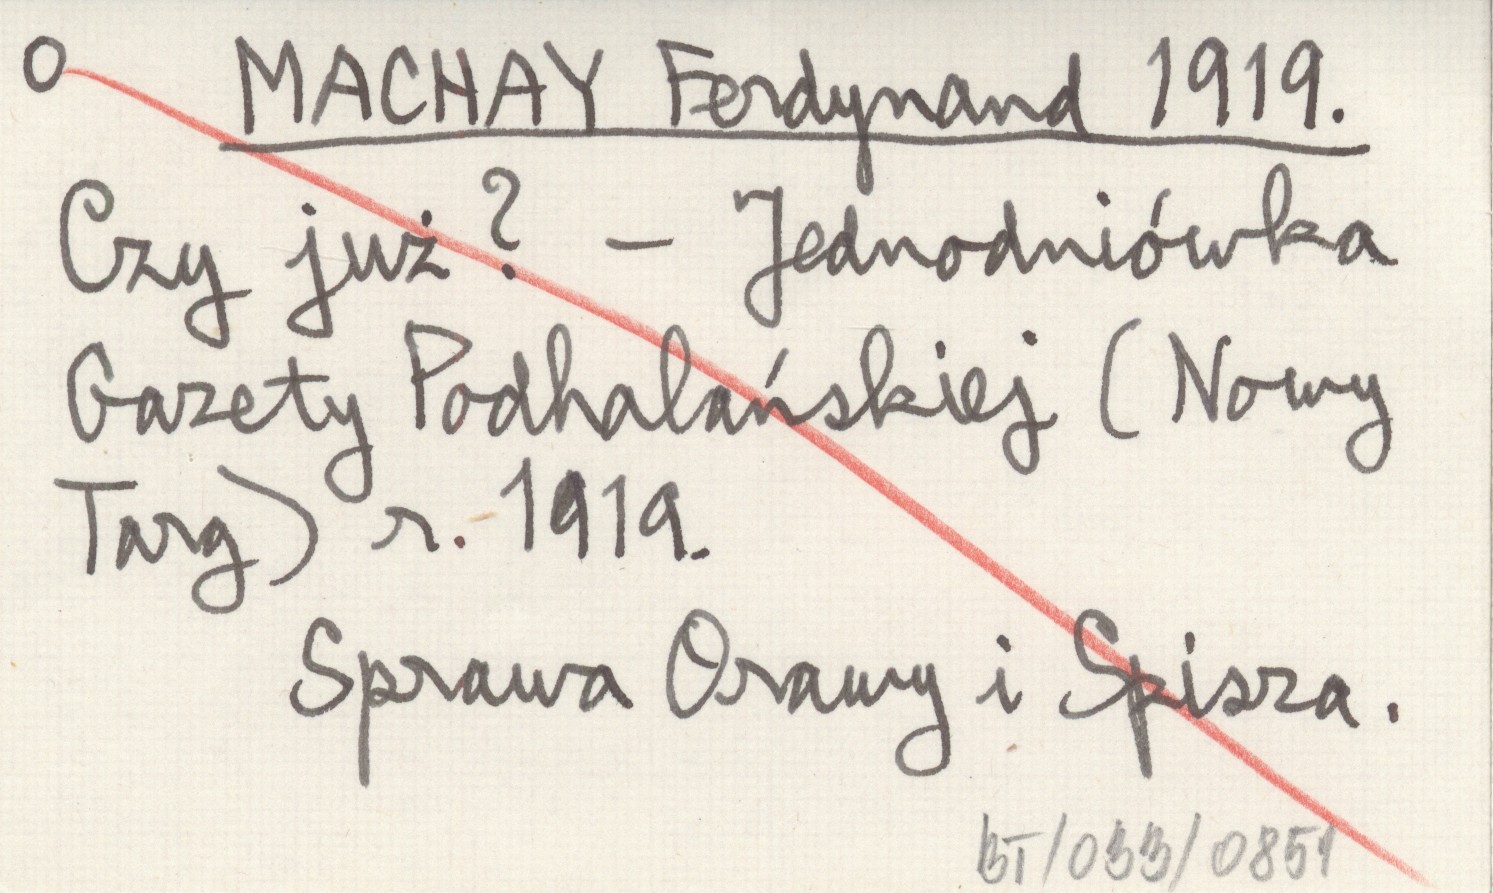 O MACHAY Ferdynand 1919.
Czy już? – Jednodniówka
Gazety Podhalańskiej (Nowy
Targ) r. 1919.
Sprawa Orawy i Spisza.
BT/033/0851